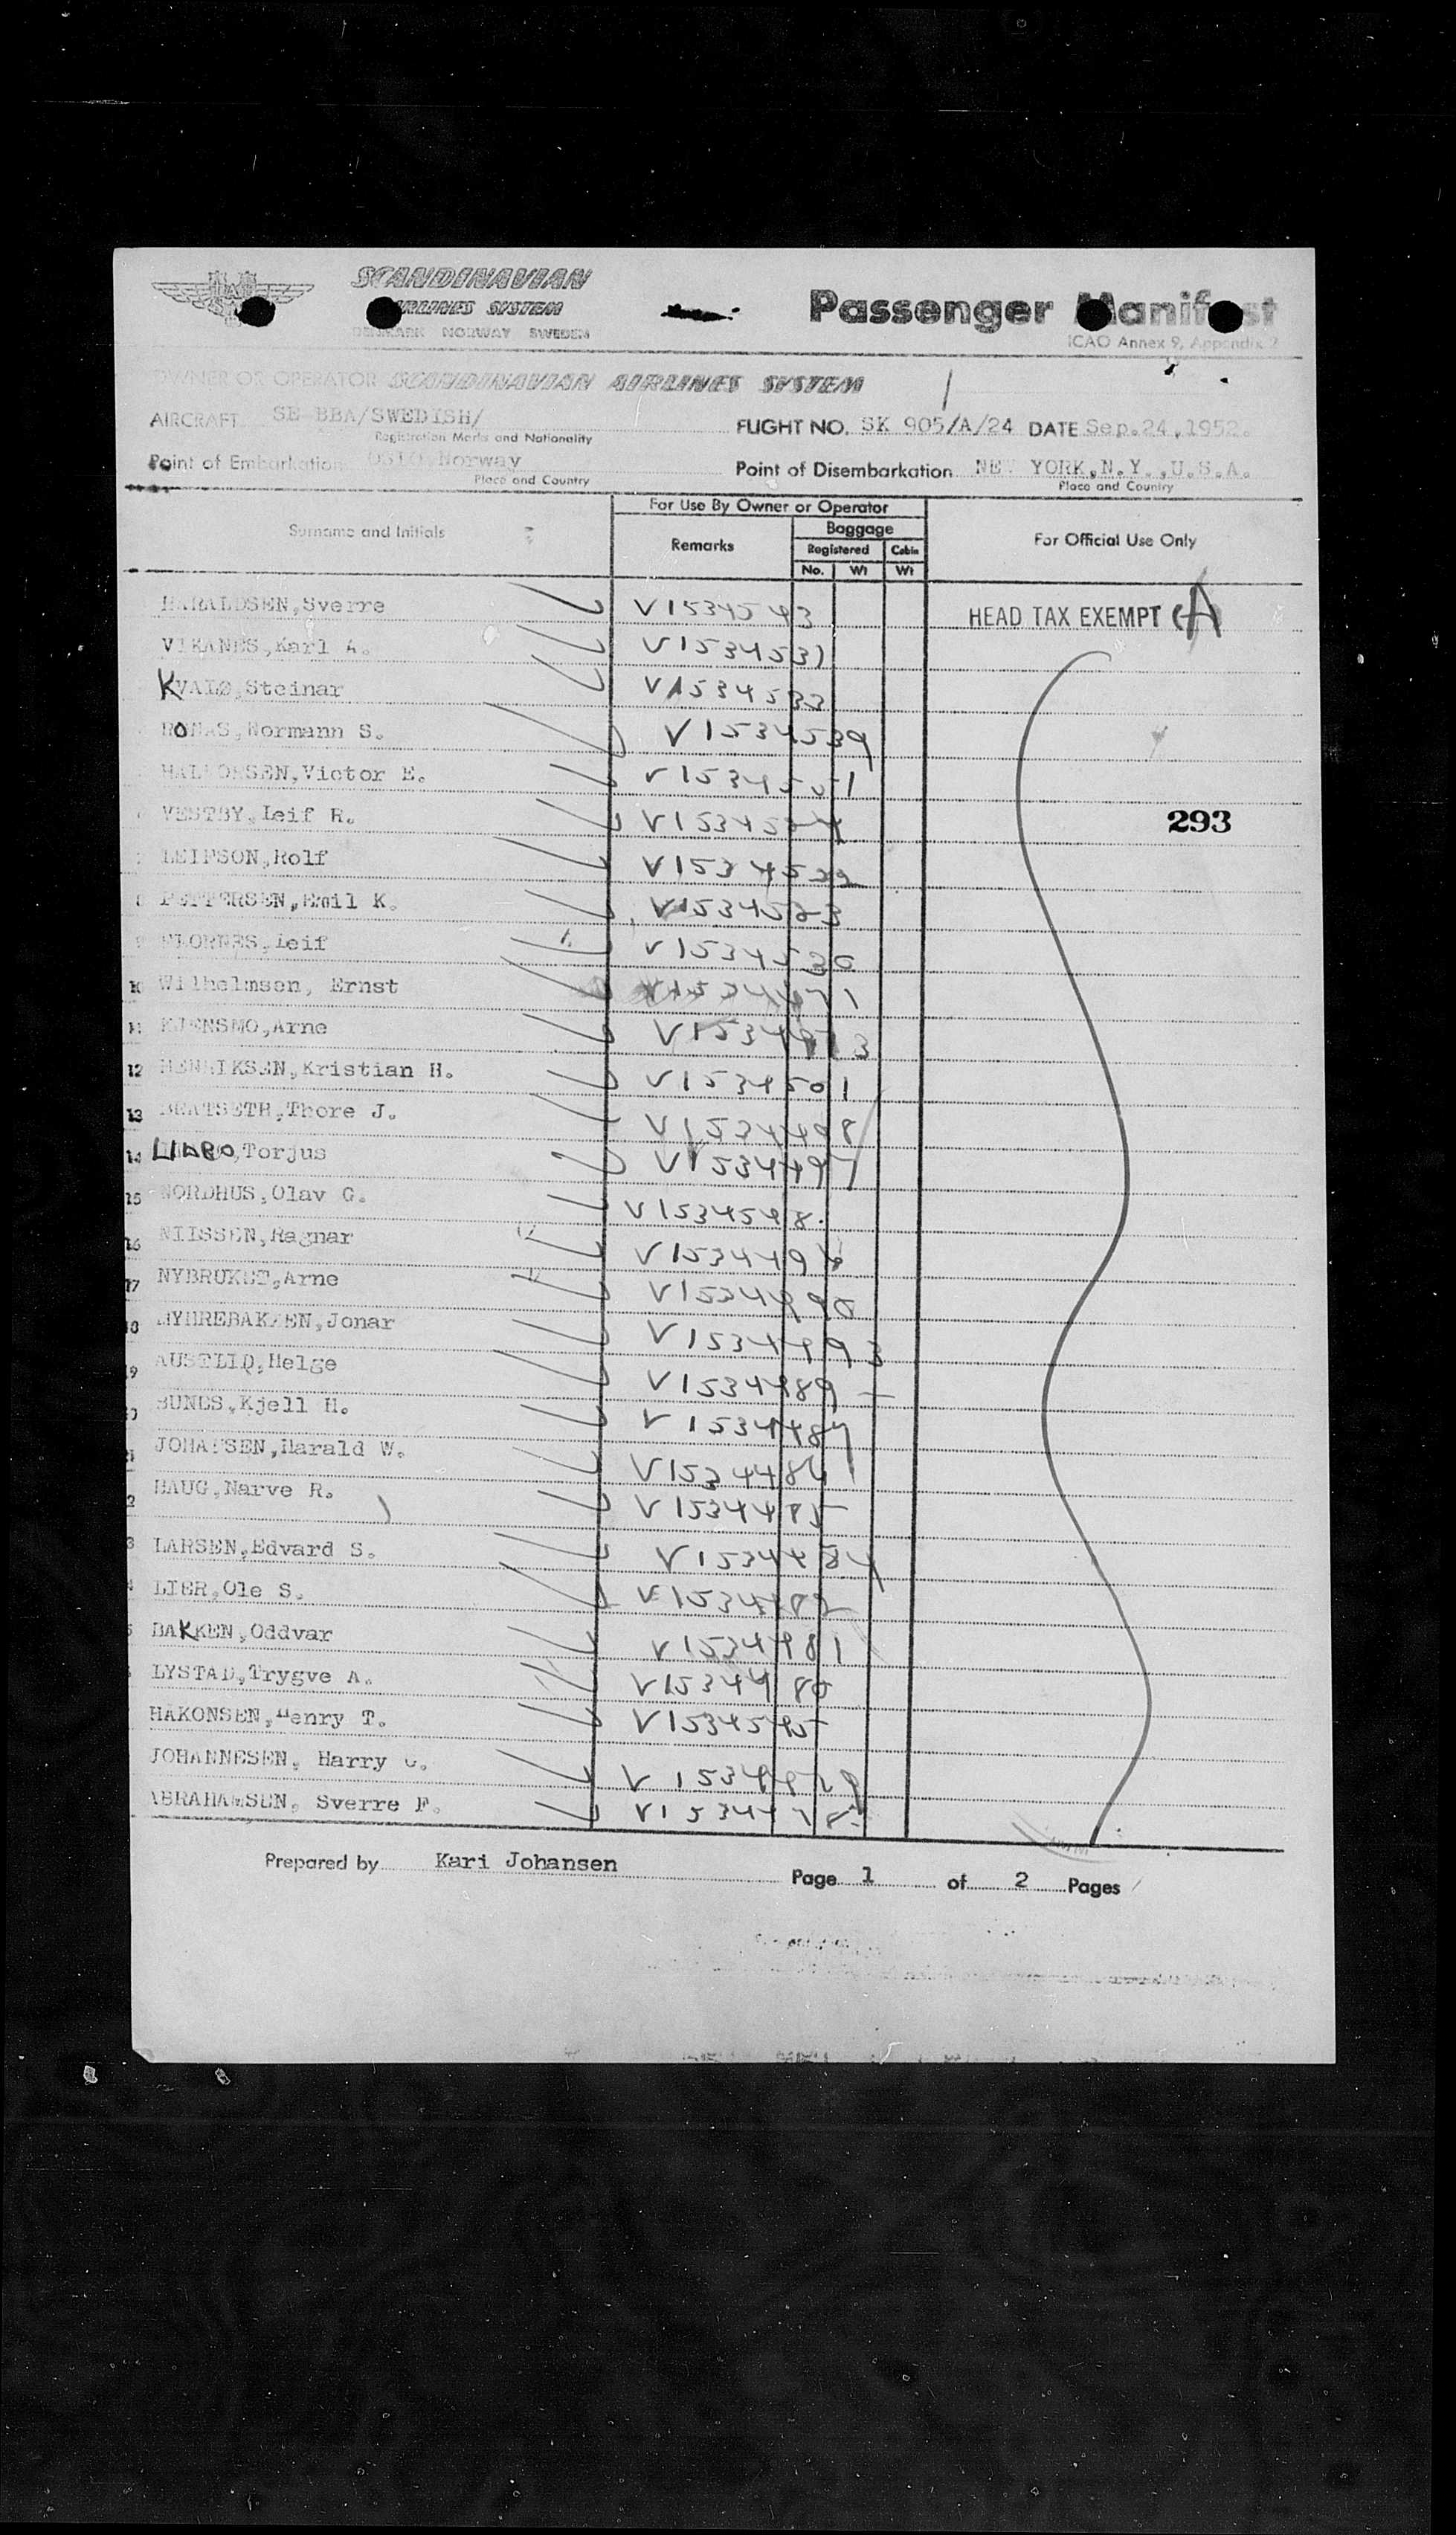 SCANDINAVIAN
AIRLINES SYSTEM
DENMARK NORWAY SWEDEN
Passenger Manifest
ICAO Annex 9, Appendix 2
OWNER OR OPERATOR SCANDINAVIAN AIRLINES SYSTEM
AIRCRAFT SE-BBA/SWEDISH/
Registration Marks and Nationality
FLIGHT NO. SK 905/A/24 DATE Sep.24,1952.
Point of Embarkation OSLO, Norway
Place and Country
Point of Disembarkation NEW YORK,N.Y.,U.S.A.
Place and Country
Surname and Initials
For Use By Owner or Operator
Remarks
Baggage
Registered Cabin
No. Wt Wt
For Official Use Only
HARALDSEN,Sverre V1534543 HEAD TAX EXEMPT
VIKANES,Karl A. V1534531
KVALØ,Steinar V1534533
RONAS,Normann S. V1534539
HALVORSEN,Victor E. V1534551
VESTBY,Leif R. 293
LEIFSON,Rolf
8 PETTERSEN,Emil K. V1534523
9 Leif V1534530
10 Wilhelmsen, Ernst
11 KJENSMO,Arne
12 HENRIKSEN,Kristian H. V1534501
13 Thore J. V1534498
14 Torjus V1534497
15 NORDHUS,Olav G.
16 NILSSEN,Ragnar
17 NYBRUKET,Arne
18 Jonar V1534493
19 AUSTLID,Helge V1534489
Kjell H. V1534487
JOHANSEN,Harald W. V1534486
HAUG,Narve R. V1534485
LARSEN,Edvard S. V1534484
LIER,Ole S. V1534482
BAKKEN,Oddvar V1534481
LYSTAD,Trygve A. V1534480
HAKONSEN,Henry T. V1534545
JOHANNESEN, Harry
ABRAHAMSEN, Sverre F.
Prepared by Kari Johansen
Page 1 of 2 Pages